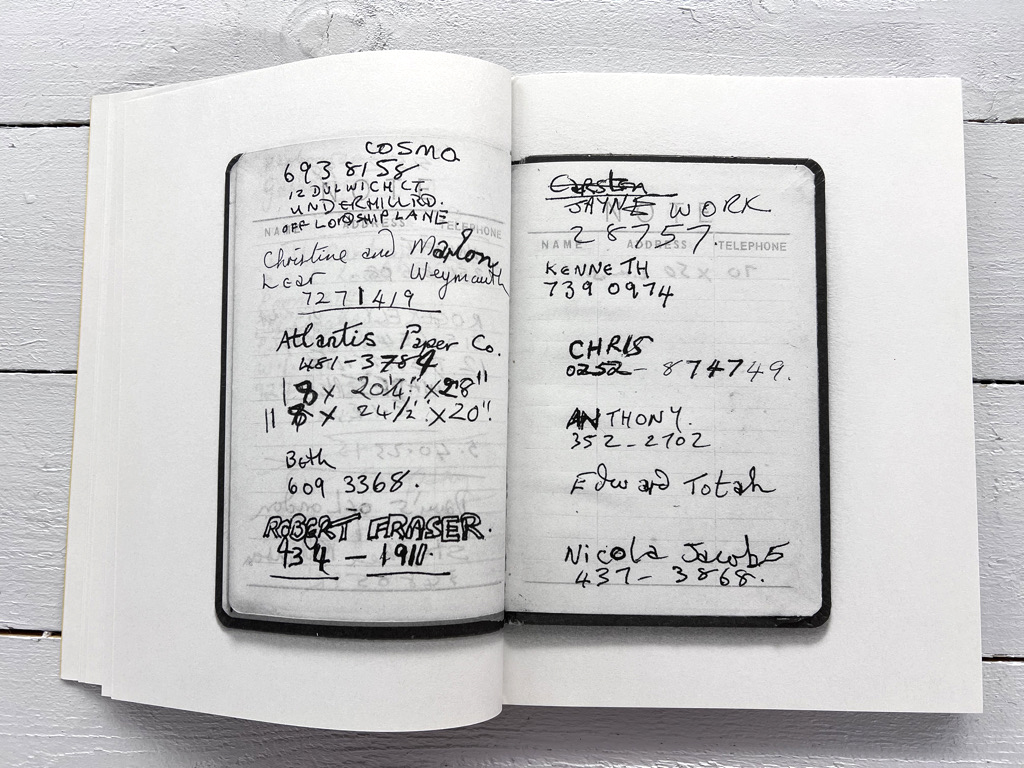 COSMO
693 8158
12 DULWICH CT.
UNDERHILL RD.
OFF LORDSHIP LANE.
NAME ADDRESS TELEPHONE
Christine and Marlon
Lear Weymouth
727 1419
Atlantis Paper Co.
481-3784
18 x 20¼" x 28"
11 8 x 24½" x 20"
Beth
609 3368.
ROBERT FRASER.
434 - 1910.
Carsten
JAYNE WORK
28757.
NAME ADDRESS TELEPHONE
KENNETH
739 0974
CHRIS
0252 - 874749.
ANTHONY.
352-2702
Edward Totah
Nicola Jacobs
437- 3868.